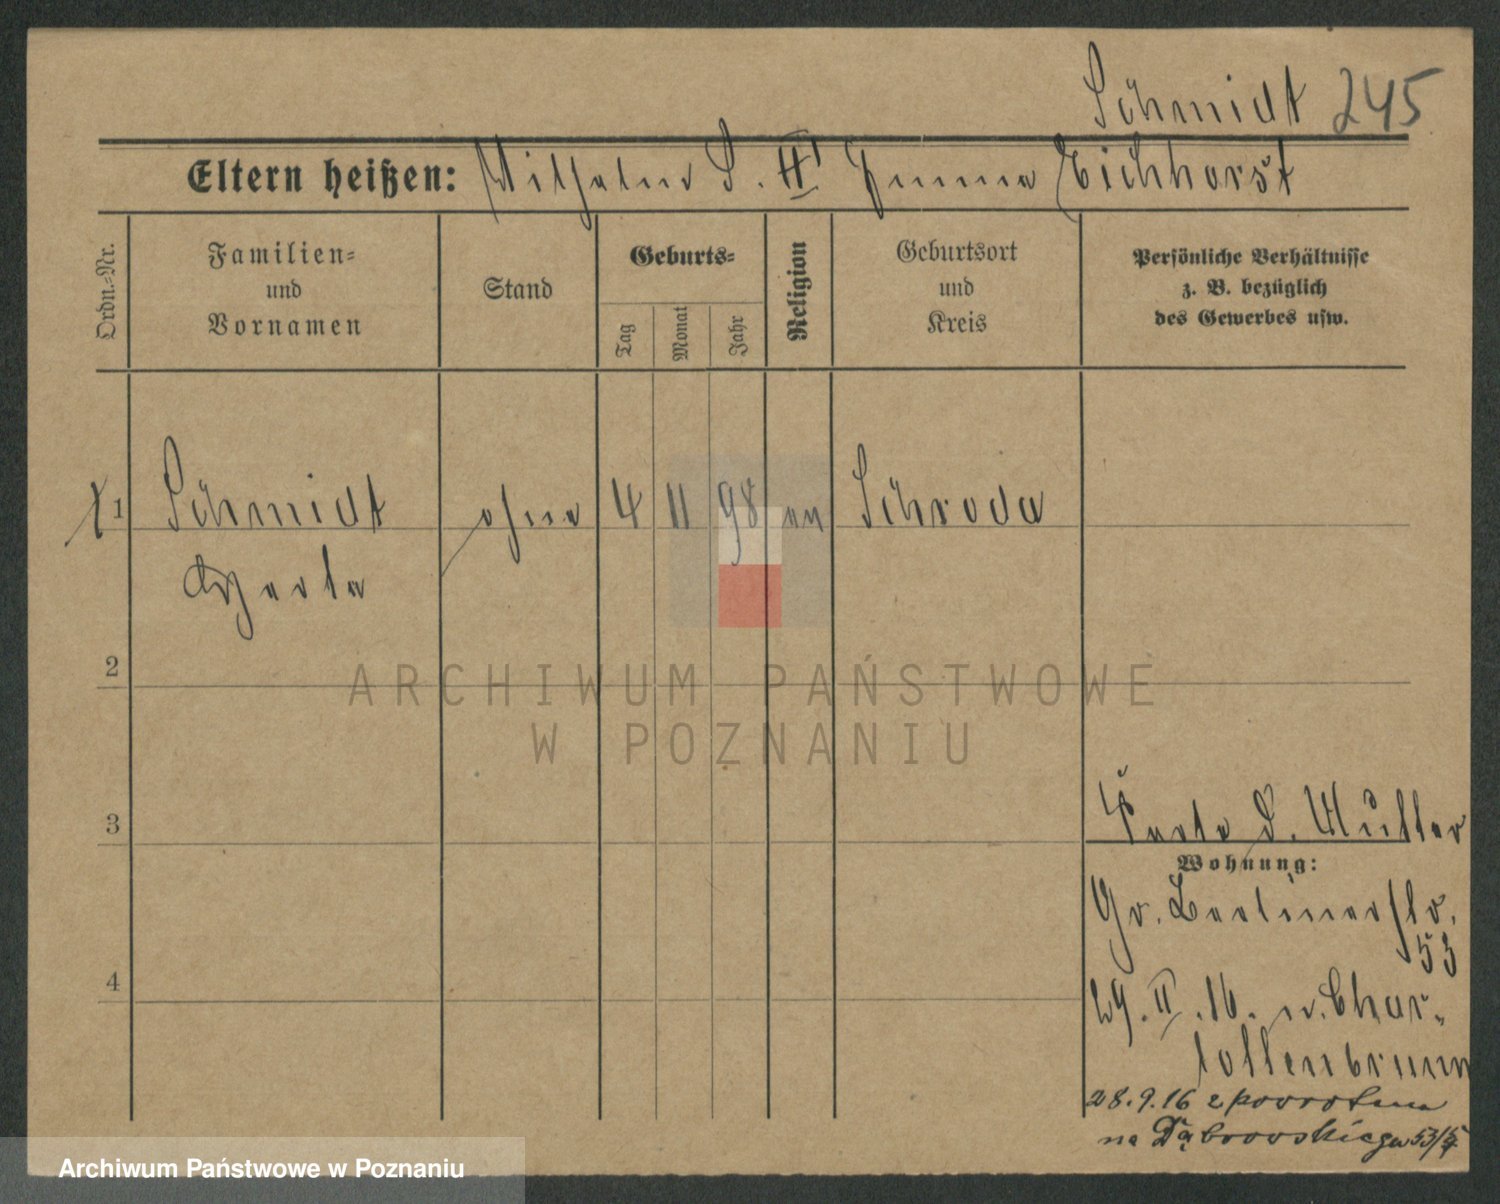 Schmidt 245
Eltern heißen: Wilhelm S. II Emma Eichhorst
Ordn.-Nr.
Familien-
und
Vornamen
Stand
Geburts-
Tag
Monat
Jahr
Religion
Geburtsort
und
Kreis
Persönliche Verhältnisse
z. B. bezüglich
des Gewerbes usw.
1 Schmidt ohne 4 11 98 ev Schroda
Herta
2
ARCHIWUM PAŃSTWOWE
W POZNANIU
3
b. Müller
Wohnung:
Gr. Berlinerstr.
53
29. II. 16. n. Char-
lottenbrunn
28.9.16 z powrotem
na Dąbrowskiego 53/5
4
Archiwum Państwowe w Poznaniu